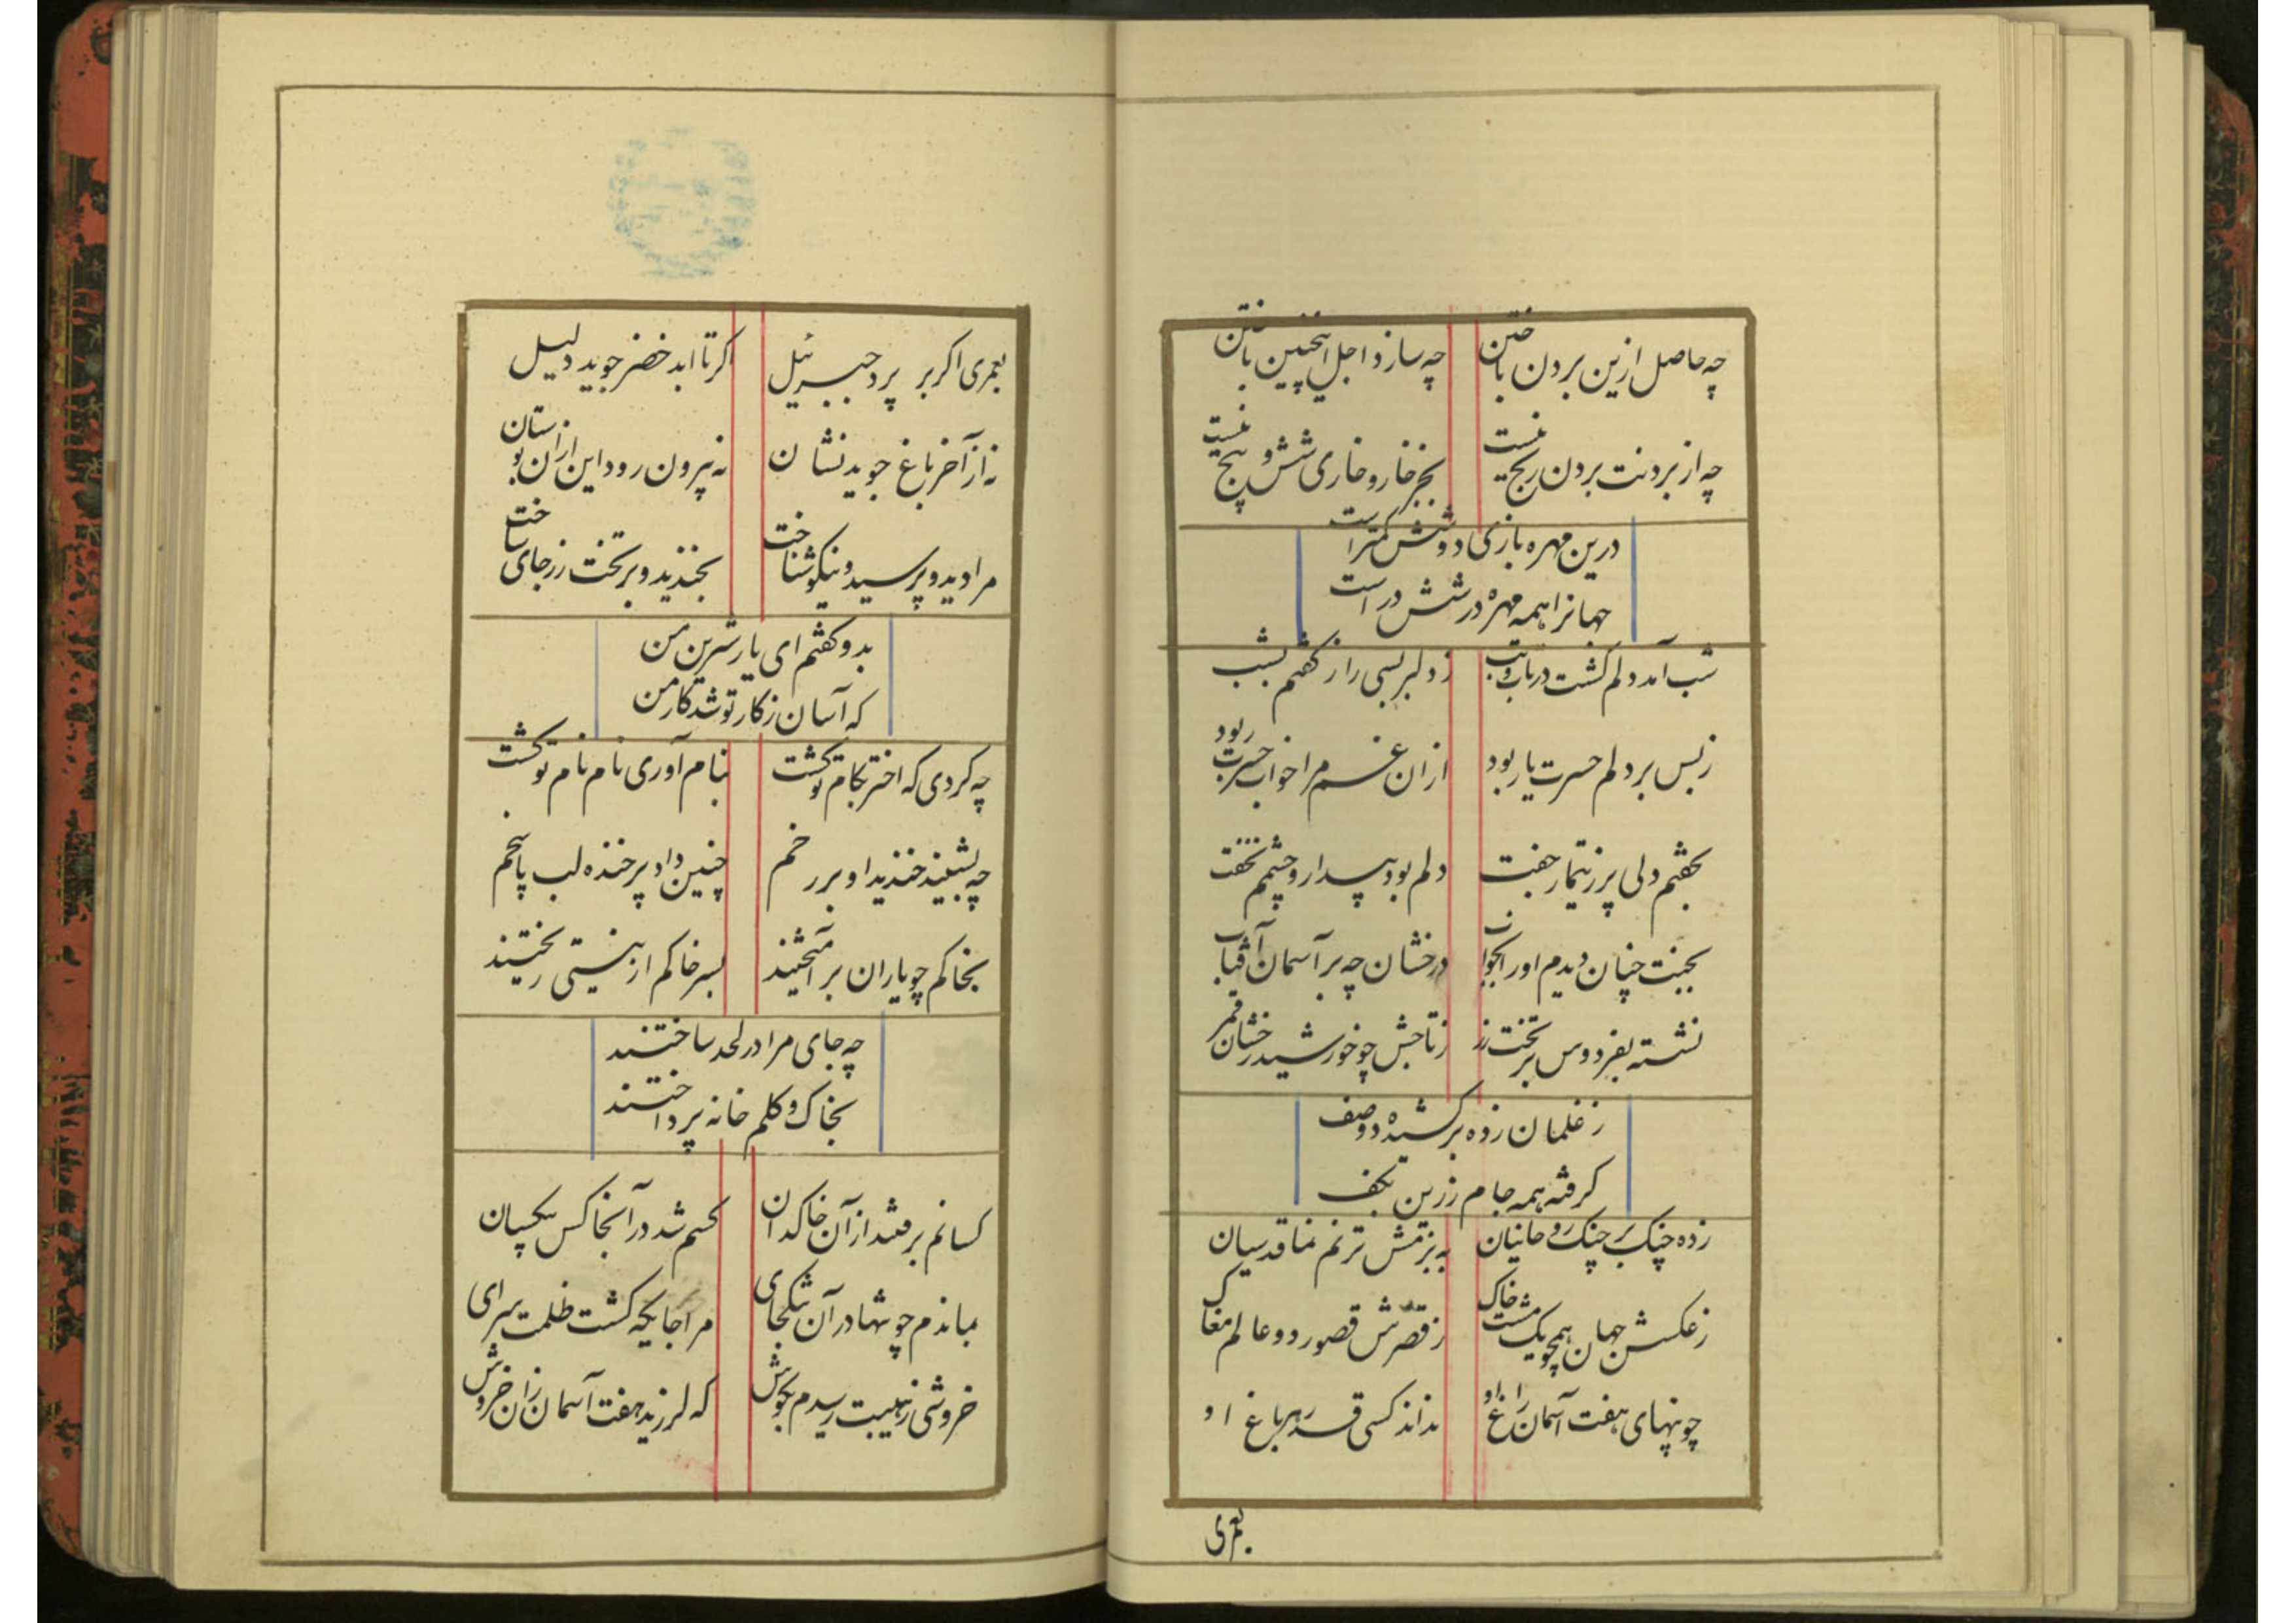 چه حاصل ازین بردن باختن
چه سازد اجل اینچنین باختن
چه از بردنت بردن رنج نیست
بجز خار و خاری شش و پنج نیست
درین مهره بازی دو شش کمتر است
جهانرا همه مهره در شش در است
شب آمد دلم کشت در تاب و تب
ز دلبر بسی راز کفتم بشب
ز بس بر دلم حسرت یار بود
از ان غم مرا خواب حسرت ربود
بخفتم دلی پر ز تیمار جفت
دلم بود بیدار و چشمم نخفت
بجنت چنان دیدم او را بخواب
درخشان چه بر آسمان آفتاب
نشسته بفردوس بر تخت زر
ز تاجش چو خورشید رخشان قمر
ز غلمان زده بر کشیده دو صف
کرفته همه جام زرین بکف
زده چنک بر چنک روحانیان
به بزمش ترنم نما قدسیان
ز عکسش جهان همچو یک مشت خاک
ز قصرش قصور دو عالم مغاک
چو پنهای هفت آسمان راغ او
نداند کسی قدر هر باغ او
بعمری
بعمری اکر بر پرد جبرئیل
اکر تا ابد خضر جوید دلیل
نه از آخر باغ جوید نشان
نه بیرون رود این از ان بوستان
مرا دید و پرسید و نیکو شناخت
بخندید و بر تخت زر جای ساخت
بدو کفتم ای یار شیرین من
که آسان ز کار تو شد کار من
چه کردی که اختر بکام تو کشت
بنام آوری نام نام تو کشت
چه بشنید خندید او بر رخم
چنین داد پر خنده لب پاسخم
بخاکم چو یاران بر آمیختند
بسر خاکم از نیستی ریختند
چه جای مرا در لحد ساختند
بخاک و کلم خانه پرداختند
کسانم برفتند از آن خاکدان
کسم شد در آنجا کس بیکسان
بماندم چو تنها در آن تنکجای
مرا جایکه کشت ظلمت سرای
خروشی ز هیبت رسیدم بکوش
که لرزید هفت آسمان زان خروش